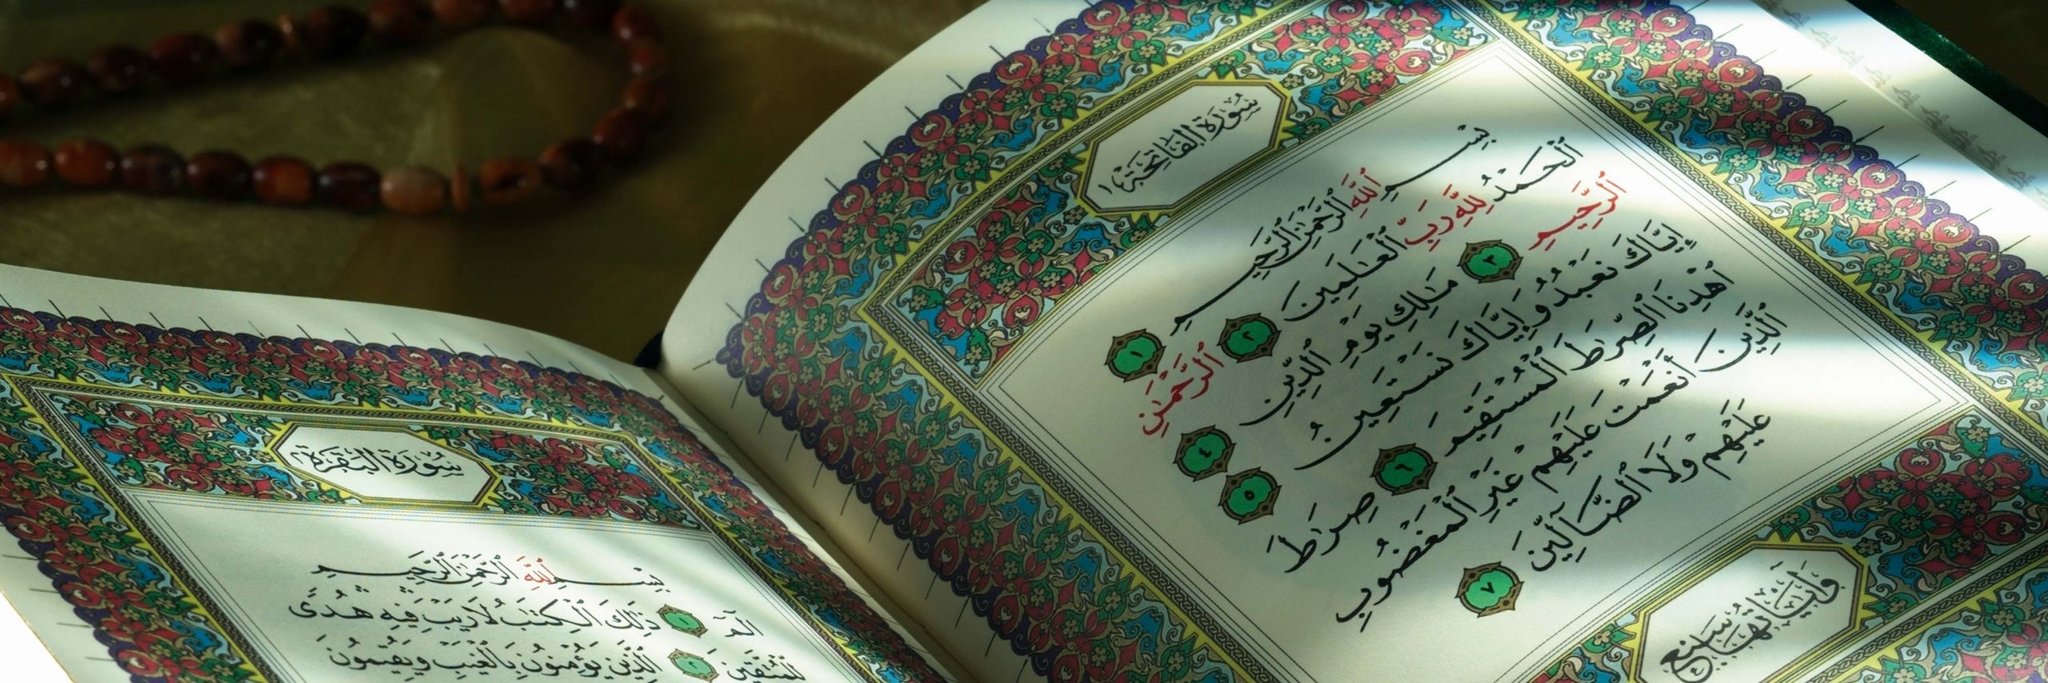 سُورَةُ الفَاتِحَةِ ١
بِسْمِ ٱللَّهِ ٱلرَّحْمَٰنِ ٱلرَّحِيمِ ١
ٱلْحَمْدُ لِلَّهِ رَبِّ ٱلْعَـٰلَمِينَ ٢ ٱلرَّحْمَـٰنِ
ٱلرَّحِيمِ ٣ مَـٰلِكِ يَوْمِ ٱلدِّينِ ٤
إِيَّاكَ نَعْبُدُ وَإِيَّاكَ نَسْتَعِينُ ٥
ٱهْدِنَا ٱلصِّرَٰطَ ٱلْمُسْتَقِيمَ ٦ صِرَٰطَ
ٱلَّذِينَ أَنْعَمْتَ عَلَيْهِمْ غَيْرِ ٱلْمَغْضُوبِ
عَلَيْهِمْ وَلَا ٱلضَّآلِّينَ ٧
وَآيَاتُهَا سَبْعٌ
سُورَةُ البَقَرَةِ
بِسْمِ ٱللَّهِ ٱلرَّحْمَٰنِ ٱلرَّحِيمِ
الٓمٓ ١ ذَٰلِكَ ٱلْكِتَـٰبُ لَا رَيْبَ فِيهِ هُدًى
لِّلْمُتَّقِينَ ٢ ٱلَّذِينَ يُؤْمِنُونَ بِٱلْغَيْبِ وَيُقِيمُونَ